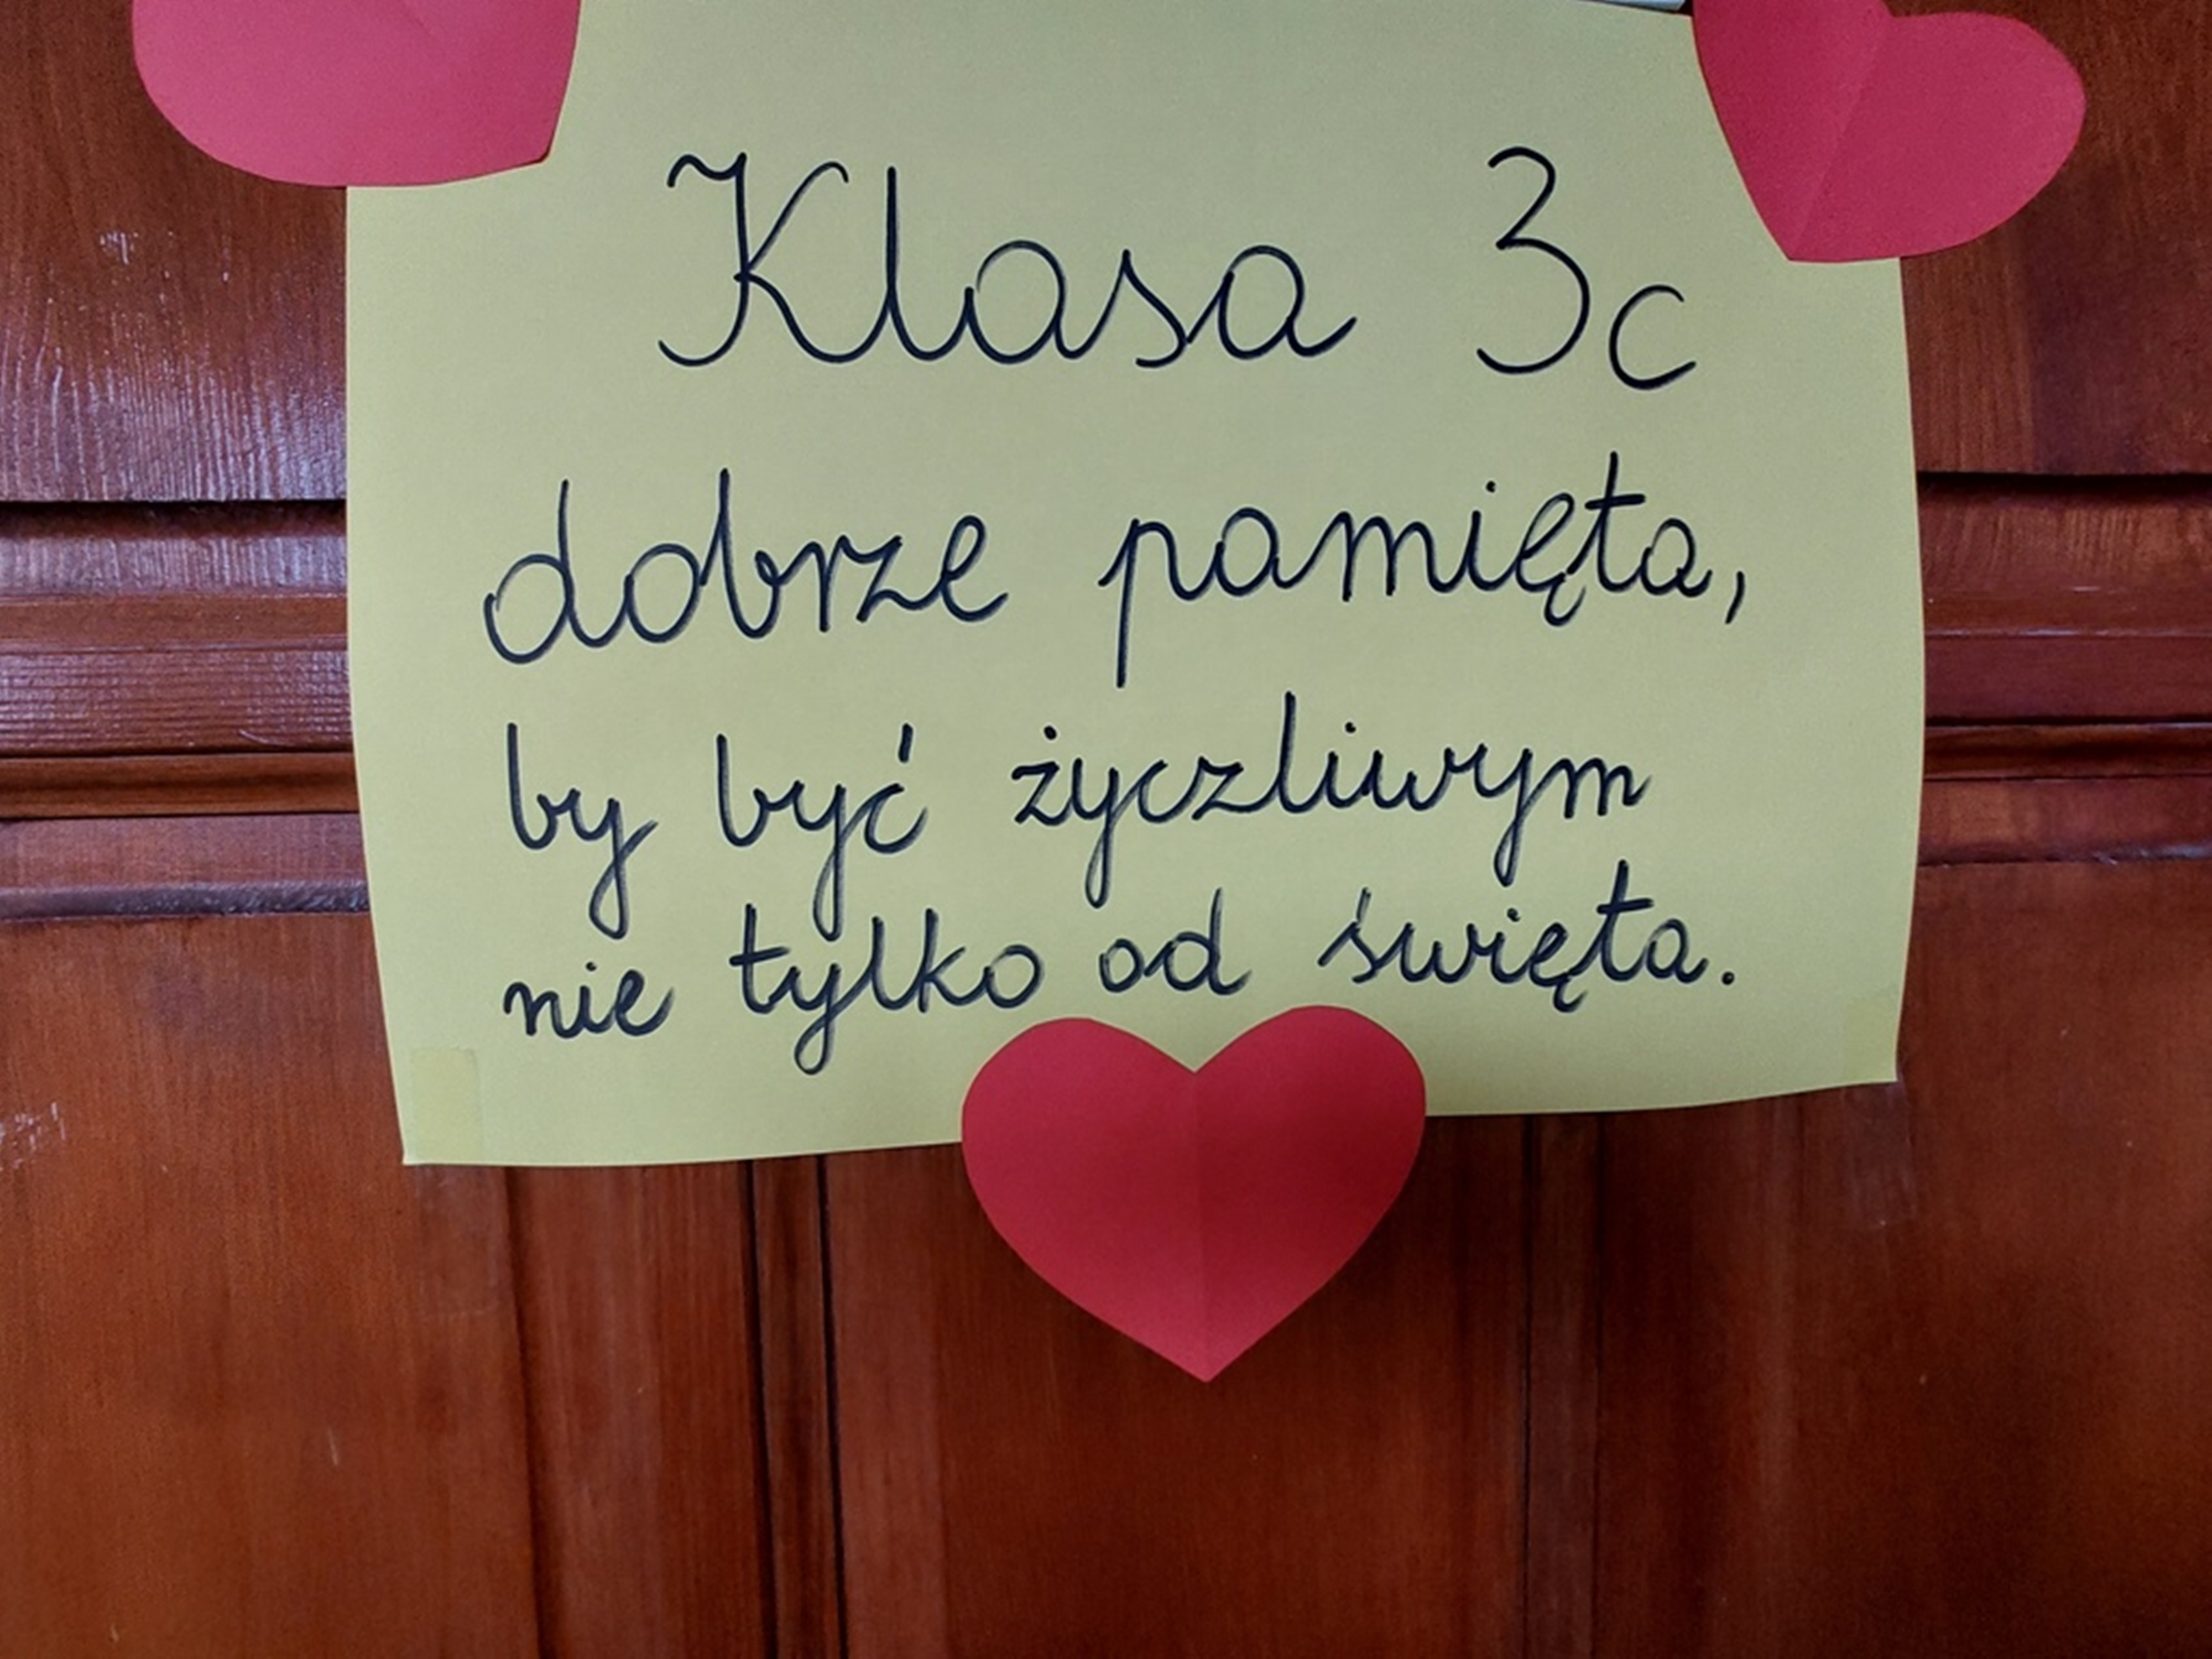 Klasa 3c
dobrze pamięta,
by być życzliwym
nie tylko od święta.